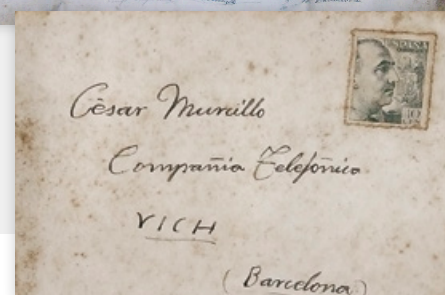 ESPAÑA
César Murcillo
Compañia Telefónica
VICH
(Barcelona)